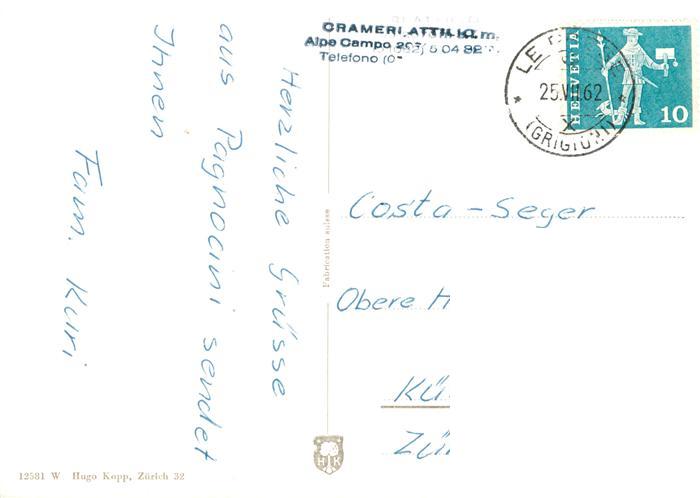 CRAMERI ATTILIO
Alpe Campo
Telefono
HELVETIA
10
25.VII.62
(GRIGIONI)
Herzliche Grüsse
aus Pagnocini sendet
Ihnen
Fam. Kuri
Fabrication suisse
Costa - Seger
Obere
Kü
Zü
HK
12581 W Hugo Kopp, Zürich 32